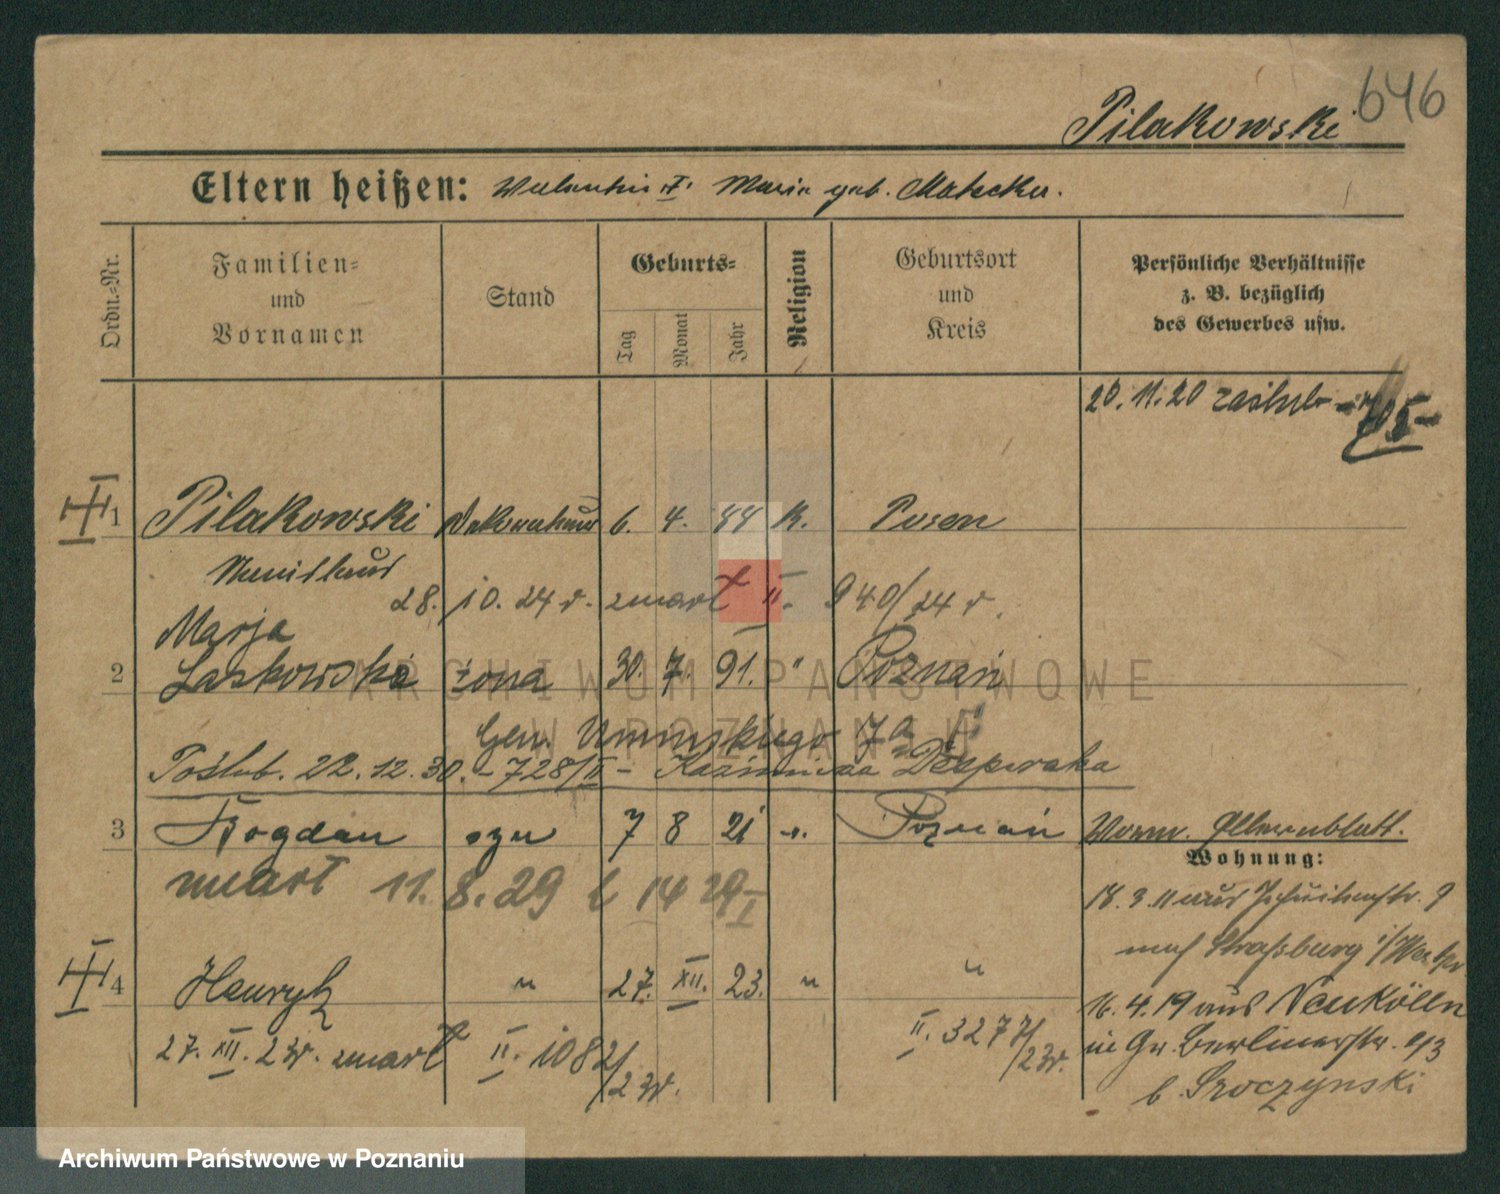 646
Pilakowski
Eltern heißen: Valentin † Maria geb. Matecka.
Ordn.-Nr.
Familien- und Vornamen
Stand
Geburts-
Tag
Monat
Jahr
Religion
Geburtsort und Kreis
Persönliche Verhältnisse z. B. bezüglich des Gewerbes usw.
20. 11. 20 zaślub
1 Pilakowski Dekorateur 6. 4. 44 K. Posen
Stanislaus
28. 10. 24 r. zmarł II. 940/24 r.
Marja
2 Laskowska żona 30. 7. 91. " Poznań
Gen. Umińskiego 7a
Poślub. 22. 12. 30. - 728/II - Kazimiera
3 Bogdan syn 7 8 21 Poznań
Vorm. Elternblatt.
zmarł 11. 8. 29 14 29 I
Wohnung:
18. 3. 11 aus Jesuitenstr. 9
nach Straßburg i/Westpr
4 Henryk " 27. XII. 23. " "
16. 4. 19 aus Neukölln
27. XII. 23r. zmarł II. 1082/23r.
II. 3277/23r.
in Gr. Berlinerstr. 93
b. Sroczynski
ARCHIWUM PAŃSTWOWE
W POZNANIU
Archiwum Państwowe w Poznaniu